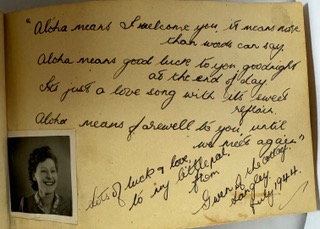 "Aloha means I welcome you, it means more
than words can say.
Aloha means good luck to you, goodnight
at the end of day
Its just a love song with its sweet
refrain.
Aloha means farewell to you, until
we meet again"
Lots of luck & love,
to my little pal.
from
Gwen of the
Langley.
July 1944.